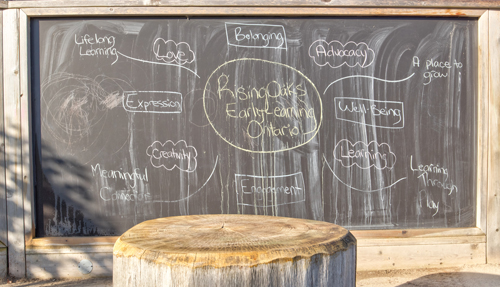 Lifelong
Learning
Love
Belonging
Advocacy
A place to
grow
Expression
RisingOaks
EarlyLearning
Ontario
Well-Being
Creativity
Learning
Meaningful
Engagement
Learning
Through